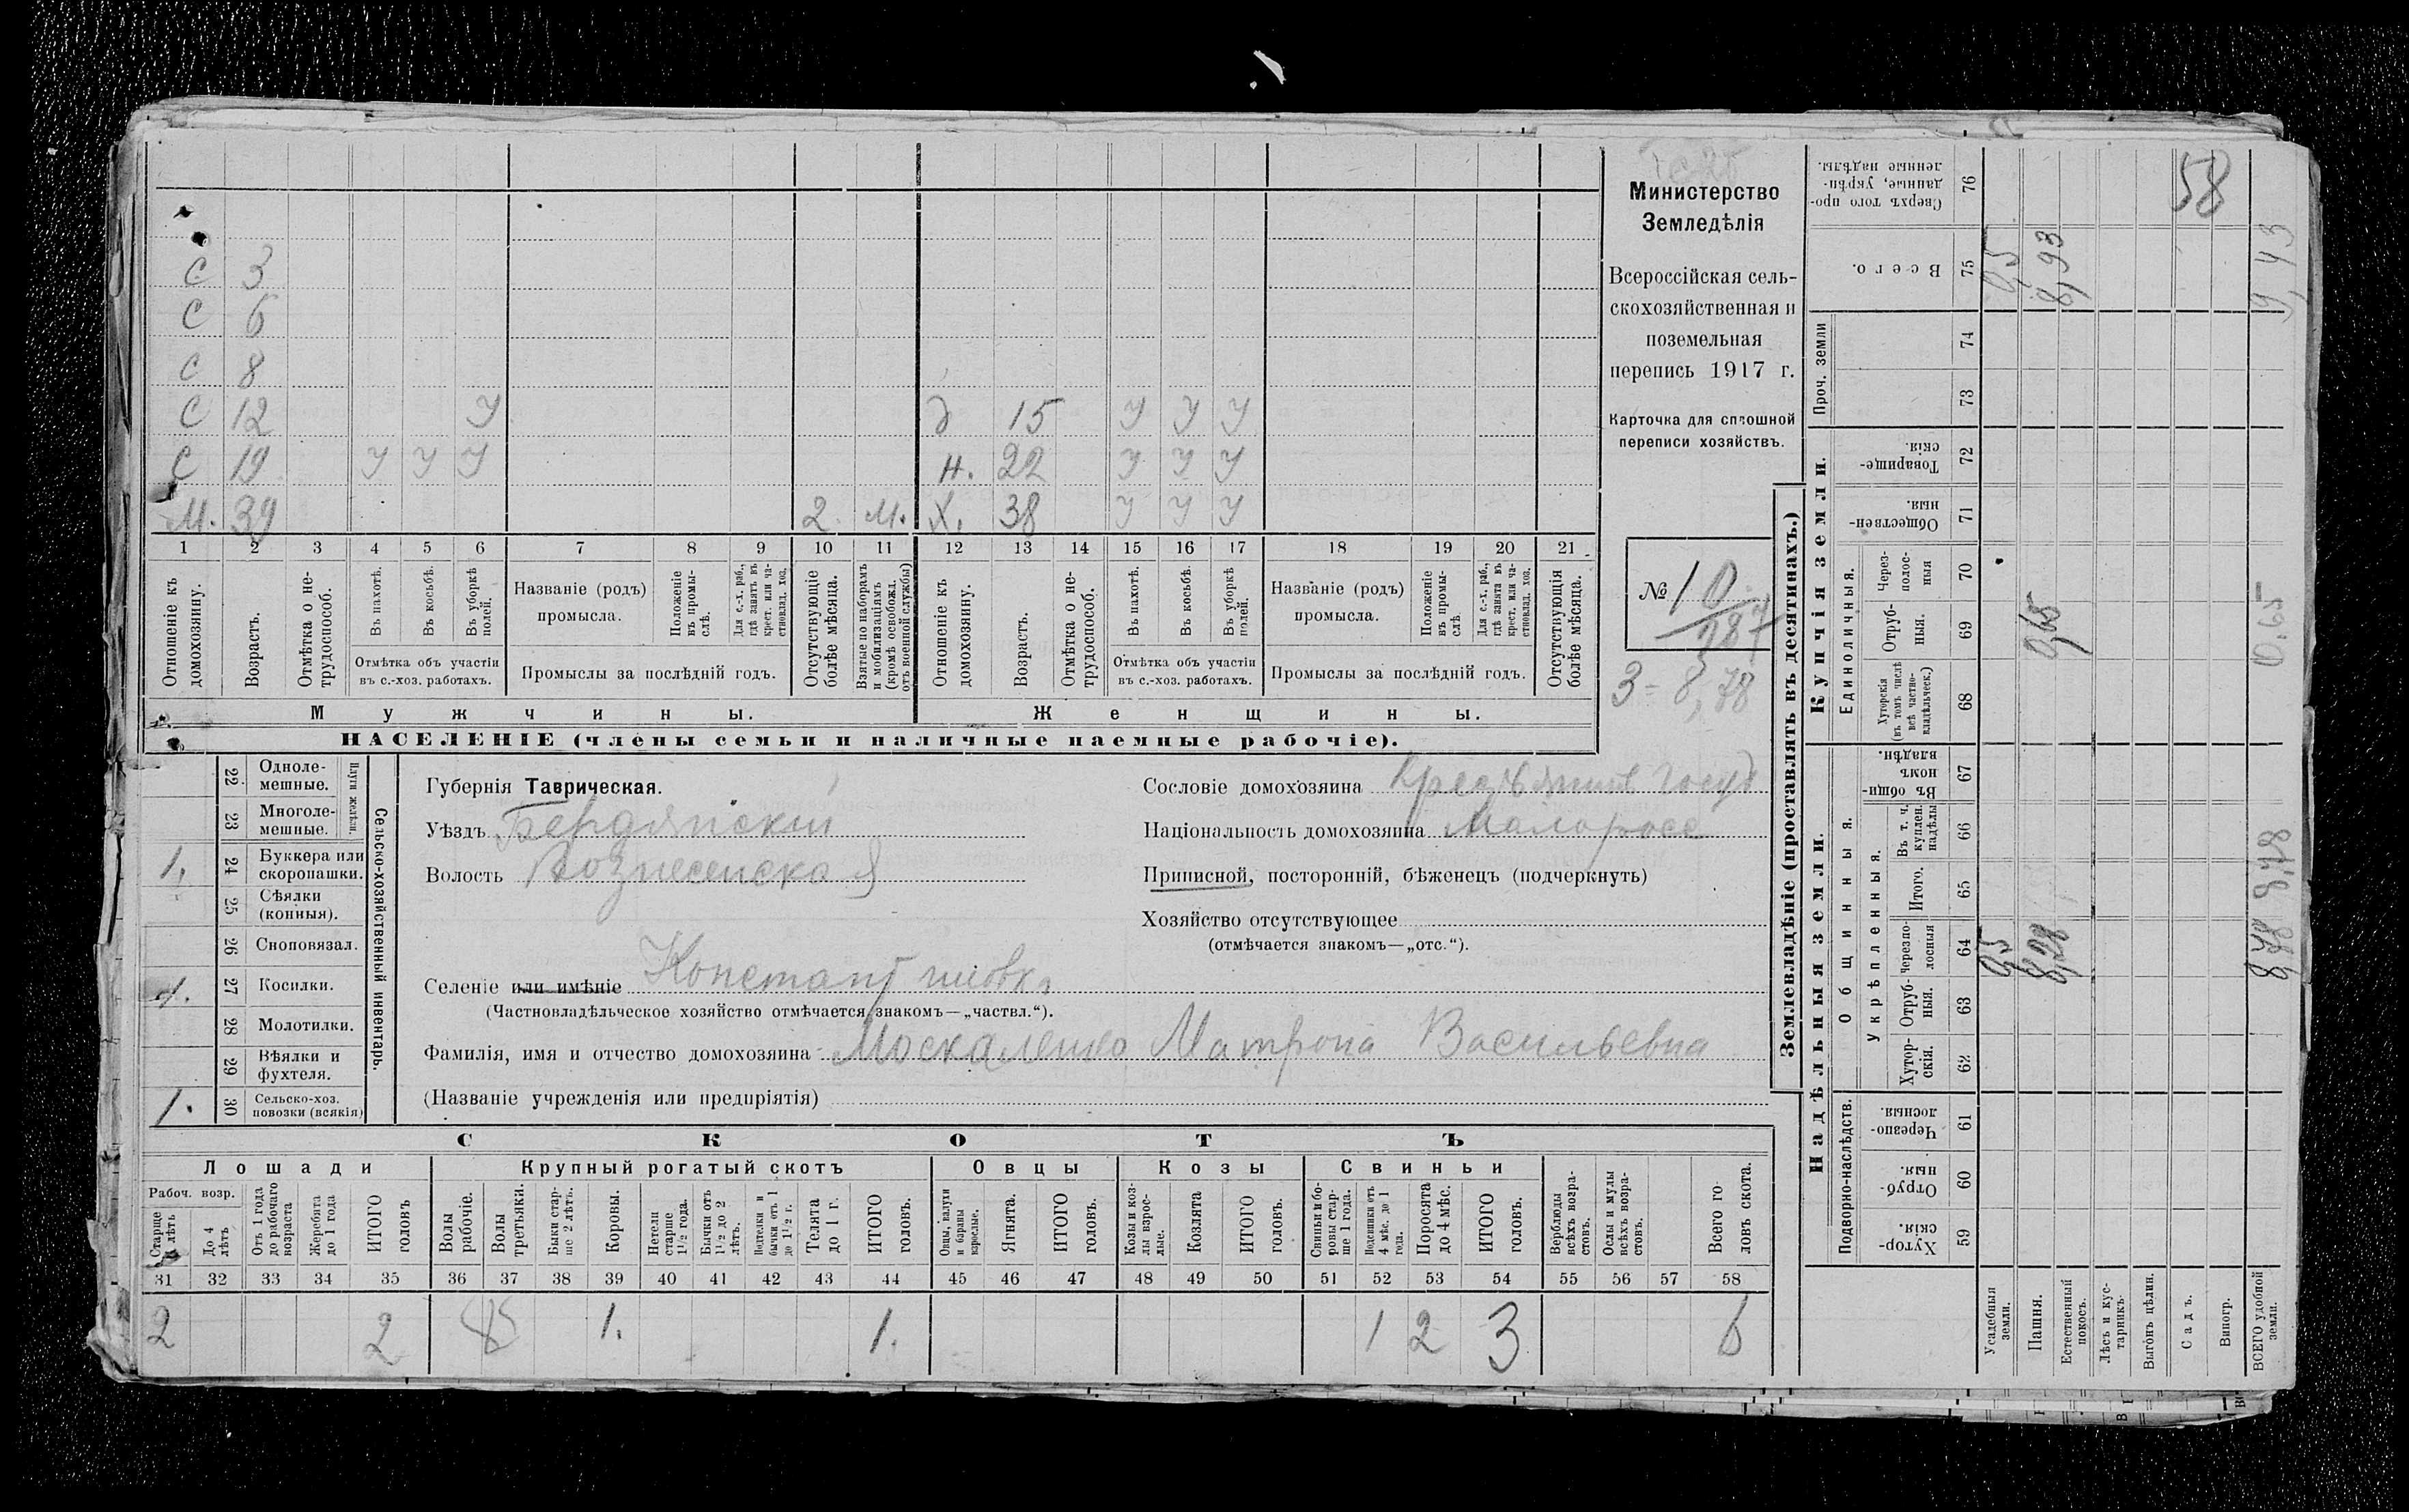 58
Министерство
Земледѣлія
Всероссійская сель-
скохозяйственная и
поземельная
перепись 1917 г.
Карточка для сплошной
переписи хозяйствъ.
№ 10
187
3 = 8,78
С 3
С 6
С 8
С 12 У д 15 У У У
С 19 У У У н. 22 У У У
М. 39 2. М. Х. 38 У У У
1 2 3 4 5 6 7 8 9 10 11 12 13 14 15 16 17 18 19 20 21
Отношеніе къ домохозяину.
Возрастъ.
Отмѣтка о не-трудоспособ.
Въ пахотѣ.
Въ косьбѣ.
Въ уборкѣ полей.
Отмѣтка объ участіи
въ с.-хоз. работахъ.
Названіе (родъ)
промысла.
Положеніе въ промы-слѣ.
Для с.-х. раб., гдѣ занятъ въ крест. или ча-стновлад. хоз.
Промыслы за послѣдній годъ.
Отсутствующіе болѣе мѣсяца.
Взятые по наборамъ и мобилизаціямъ (кромѣ освобожд. отъ военной службы)
Отношеніе къ домохозяину.
Возрастъ.
Отмѣтка о не-трудоспособ.
Въ пахотѣ.
Въ косьбѣ.
Въ уборкѣ полей.
Отмѣтка объ участіи
въ с.-хоз. работахъ.
Названіе (родъ)
промысла.
Положеніе въ промы-слѣ
Для с.-х. раб., гдѣ занята въ крест. или ча-стновлад. хоз.
Промыслы за послѣдній годъ.
Отсутствующія болѣе мѣсяца.
Мужчины. Женщины.
НАСЕЛЕНІЕ (члены семьи и наличные наемные рабочіе).
22 Одноле-мешные.
23 Многоле-мешные.
Плуги желѣзн.
1. 24 Буккера или скоропашки.
25 Сѣялки (конныя).
26 Сноповязал.
1. 27 Косилки.
28 Молотилки.
29 Вѣялки и фухтеля.
1. 30 Сельско-хоз. повозки (всякія)
Сельско-хозяйственный инвентарь.
Губернія Таврическая.
Уѣздъ Бердянскій
Волость Вознесенская
Сословіе домохозяина Крестьянинъ госуд
Національность домохозяина Малоросс
Приписной, посторонній, бѣженецъ (подчеркнуть)
Хозяйство отсутствующее
(отмѣчается знакомъ—„отс.“).
Селеніе или имѣніе Константиновка
(Частновладѣльческое хозяйство отмѣчается знакомъ—„частвл.“).
Фамилія, имя и отчество домохозяина Москаленко Матрона Васильевна
(Названіе учрежденія или предпріятія)
СКОТЪ
Лошади Крупный рогатый скотъ Овцы Козы Свиньи
Рабоч. возр.
Старше 4 лѣтъ
До 4 лѣтъ
Отъ 1 года до рабочаго возраста
Жеребята до 1 года
ИТОГО головъ
Волы рабочіе.
Волы третьяки.
Быки стар-ше 2 лѣтъ.
Коровы.
Нетели старше 1½ года.
Бычки отъ 1½ до 2 лѣтъ.
Подтелки и бычки отъ 1 до 1½ г.
Телята до 1 г.
ИТОГО головъ.
Овцы, валухи и бараны взрослые.
Ягнята.
ИТОГО головъ.
Козы и коз-лы взрос-лые.
Козлята
ИТОГО головъ.
Свиньи и бо-ровы стар-ше 1 года.
Подсвинки отъ 4 мѣс. до 1 года.
Поросята до 4 мѣс.
ИТОГО головъ.
Верблюды всѣхъ возра-стовъ.
Ослы и мулы всѣхъ возра-стовъ.
Всего го-ловъ скота.
31 32 33 34 35 36 37 38 39 40 41 42 43 44 45 46 47 48 49 50 51 52 53 54 55 56 57 58
2 2 1. 1. 1 2 3 6
Землевладѣніе (проставлять въ десятинахъ.)
Надѣльныя земли. Купчія земли.
Подворно-наслѣдств.
Общинныя.
Укрѣпленныя.
Единоличныя.
Проч. земли
Хутор-скія. 59
Отруб-ныя. 60
Черезпо-лосныя. 61
Хутор-скія. 62
Отруб-ныя. 63
Черезпо-лосныя 64
Итого. 65
Въ т. ч. куплен. надѣлы 66
Въ общин-номъ владѣн. 67
Хуторскія (въ томъ числѣ всѣ частно-владѣльческ.) 68
Отруб-ныя. 69
Через-полос-ныя 70
Обществен-ныя. 71
Товарище-скія. 72
73
74
Всего. 75
Сверхъ того про-данные, укрѣп-ленные надѣлы. 76
Усадебныя земли. 0,5 0,5
Пашня. 8,28 0,65 8,93
Естественный покосъ.
Лѣсъ и кус-тарникъ.
Выгонъ цѣлин.
Садъ.
Виногр.
ВСЕГО удобной земли. 8,78 8,78 0.65 9,43